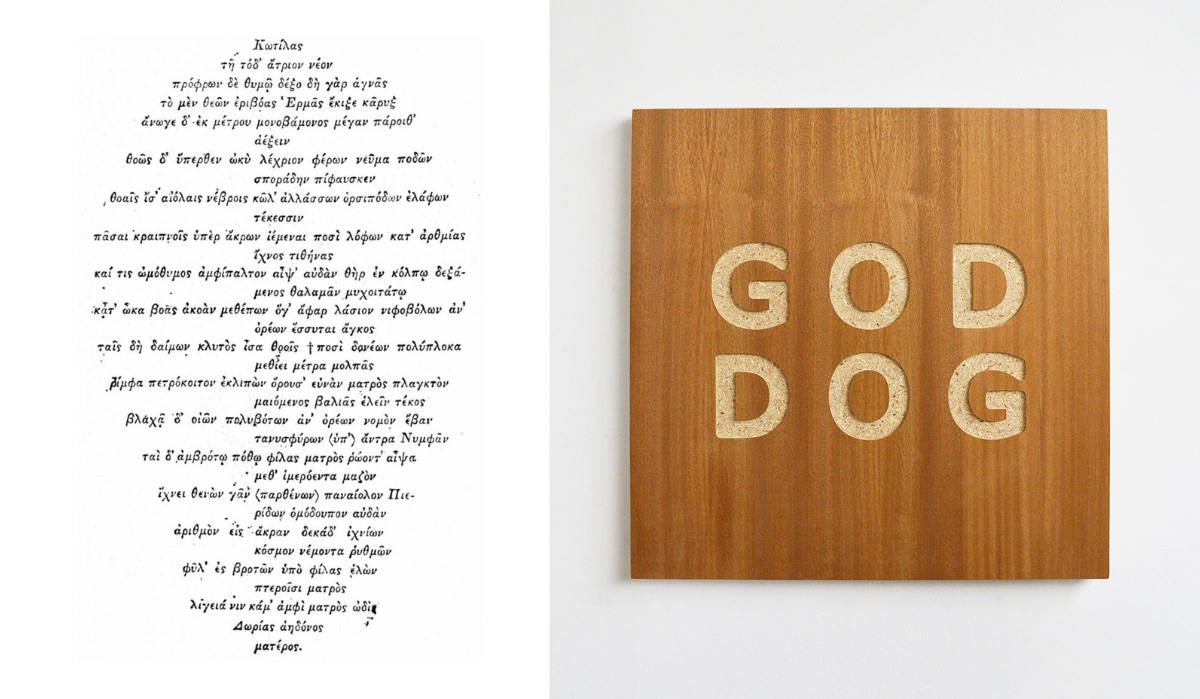 Κωτίλας
τῆ τόδ' ἄτριον νέον
πρόφρων δὲ θυμῷ δέξο δὴ γὰρ ἁγνᾶς
τὸ μὲν θεῶν ἐριβόας Ἑρμᾶς ἔκιξε κᾶρυξ
ἄνωγε δ' ἐκ μέτρου μονοβάμονος μέγαν πάροιθ'
ἀέξειν
θοῶς δ' ὕπερθεν ὠκὺ λέχριον φέρων νεῦμα ποδῶν
σποράδην πίφαυσκεν
θοαῖς ἴσ' αἰόλαις νέβροις κῶλ' ἀλλάσσων ὀρσιπόδων ἐλάφων
τέκεσσιν
πᾶσαι κραιπνοῖς ὑπὲρ ἄκρων ἱέμεναι ποσὶ λόφων κατ' ἀρθμίας
ἴχνος τιθήνας
καί τις ὠμόθυμος ἀμφίπαλτον αἶψ' αὐδὰν θὴρ ἐν κόλπῳ δεξά-
μενος θαλαμᾶν μυχοιτάτῳ
κᾆτ' ὦκα βοᾶς ἀκοὰν μεθέπων ὅγ' ἄφαρ λάσιον νιφοβόλων ἀν'
ὀρέων ἔσσυται ἄγκος
ταῖς δὴ δαίμων κλυτὸς ἶσα θοοῖς † ποσὶ δονέων πολύπλοκα
μεθίει μέτρα μολπᾶς
ῥίμφα πετρόκοιτον ἐκλιπὼν ὄρουσ' εὐνὰν ματρὸς πλαγκτὸν
μαιόμενος βαλιᾶς ἑλεῖν τέκος
βλάχᾷ δ' οἰῶν πολυβότων ἀν' ὀρέων νομὸν ἔβαν
τανυσφύρων (ὑπ') ἄντρα Νυμφᾶν
ταὶ δ' ἀμβρότῳ πόθῳ φίλας ματρὸς ῥώοντ' αἶψα
μεθ' ἱμερόεντα μαζὸν
ἴχνει θενὼν γᾶν ⟨παρθένων⟩ παναίολον Πιε-
ρίδων ὁμόδουπον αὐδὰν
ἀριθμὸν εἰς ἄκραν δεκάδ' ἰχνίων
κόσμον νέμοντα ῥυθμῶν
φῦλ' ἐς βροτῶν ὑπὸ φίλας ἑλὼν
πτεροῖσι ματρὸς
λίγειά νιν κάμ' ἀμφὶ ματρὸς ὠδὶς
Δωρίας ἀηδόνος
ματέρος.
GOD
DOG